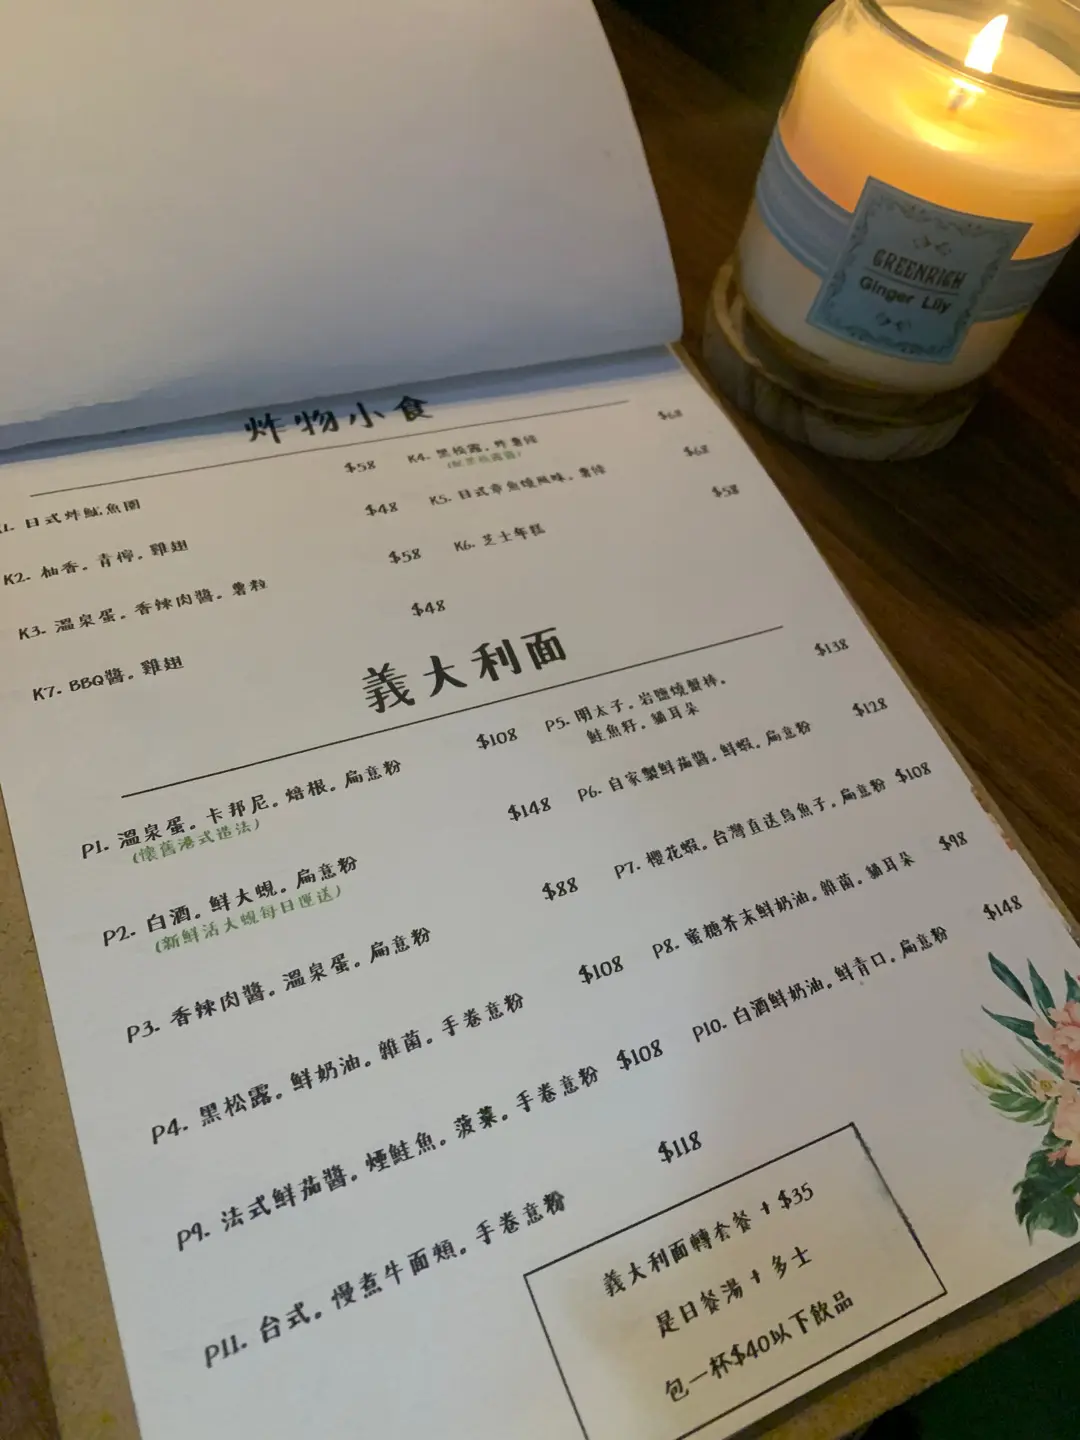 GREENRICH
Ginger Lily
炸物小食
K1. 日式炸魷魚圈 $58
K2. 柚香。青檸。雞翅 $48
K3. 溫泉蛋。香辣肉醬。薯粒 $58
K7. BBQ醬。雞翅 $48
K4. 黑松露。炸薯條 $68
(配黑松露醬)
K5. 日式章魚燒風味。薯條 $68
K6. 芝士年糕 $58
義大利面
P1. 溫泉蛋。卡邦尼。焙根。扁意粉 $108
(懷舊港式造法)
P2. 白酒。鮮大蜆。扁意粉 $148
(新鮮活大蜆每日運送)
P3. 香辣肉醬。溫泉蛋。扁意粉 $88
P4. 黑松露。鮮奶油。雜菌。手卷意粉 $108
P9. 法式鮮茄醬。煙鮭魚。菠菜。手卷意粉 $108
P11. 台式。慢煮牛面頰。手卷意粉 $118
P5. 明太子。岩鹽燒蟹棒。 $138
鮭魚籽。貓耳朵
P6. 自家製鮮茄醬。鮮蝦。扁意粉 $128
P7. 櫻花蝦。台灣直送烏魚子。扁意粉 $108
P8. 蜜糖芥末鮮奶油。雜菌。貓耳朵 $98
P10. 白酒鮮奶油。鮮青口。扁意粉 $148
義大利面轉套餐 + $35
是日餐湯 + 多士
包一杯$40以下飲品